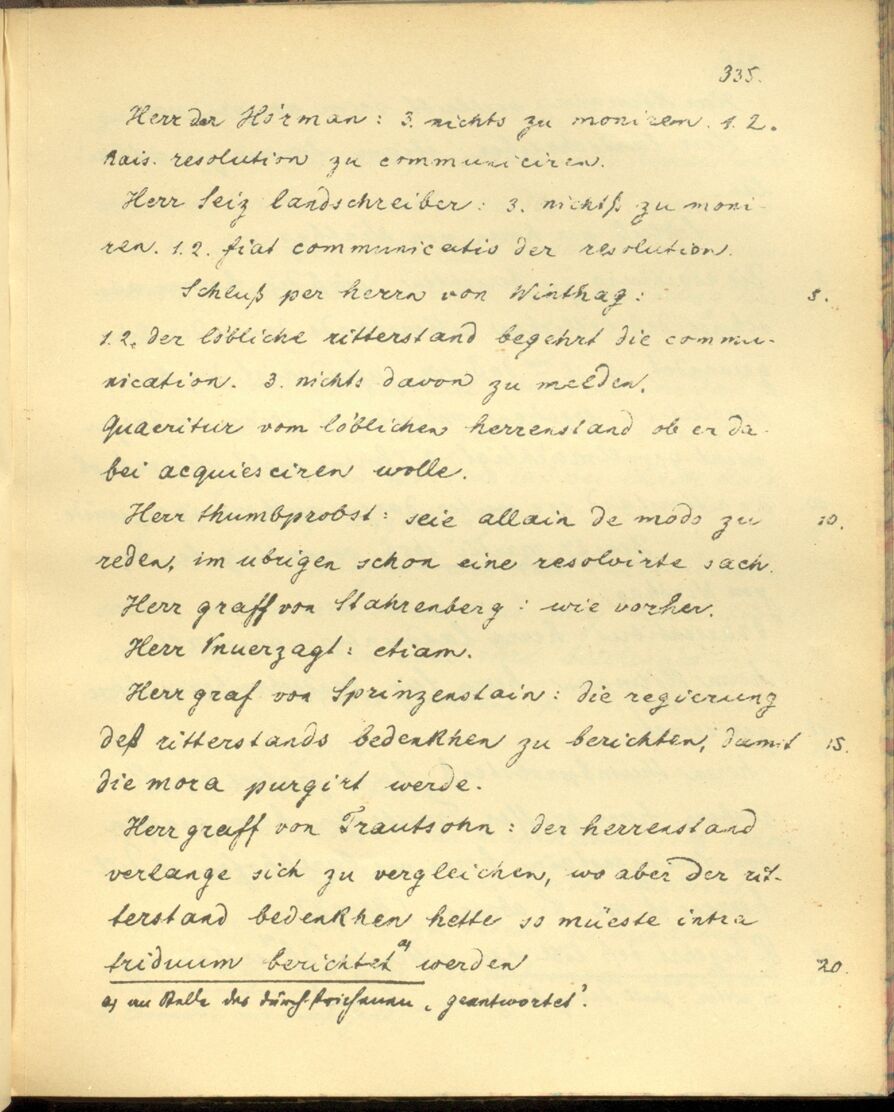 335.
Herr der Hörman: 3. nichts zu moniren. 1. 2.
Kais. resolution zu communiciren.
Herr Seiz landschreiber: 3. nichtß zu moni-
ren. 1. 2. fiat communicatio der resolution.
Schluß per herrn von Winthag: 5.
1. 2. der löbliche ritterstand begehrt die commu-
nication. 3. nichts davon zu melden.
Quaeritur vom löblichen herrenstand ob er da-
bei acquiesciren wolle.
Herr thumbprobst: seie allain de modo zu 10.
reden, im ubrigen schon eine resolvirte sach.
Herr graff von Stahrenberg: wie vorher.
Herr Vnuerzagt: etiam.
Herr graf von Sprinzenstain: die regierung
deß ritterstands bedenkhen zu berichten, damit 15.
die mora purgirt werde.
Herr graff von Trautsohn: der herrenstand
verlange sich zu vergleichen, wo aber der rit-
terstand bedenkhen hette so müeste intra
triduum berichtet a) werden 20.
a) an Stelle des durchstrichenen „geantwortet".